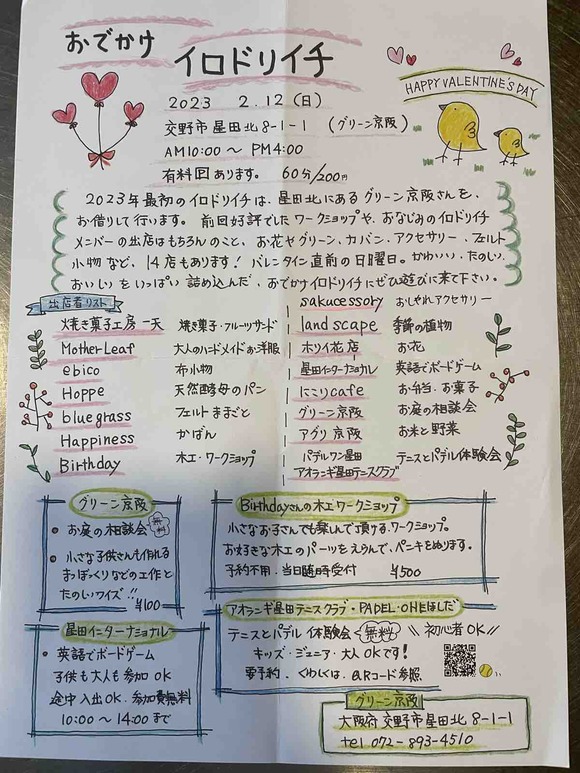 おでかけ
イロドリイチ
HAPPY VALENTINE'S DAY
2023 2.12 (日)
交野市 星田北8-1-1 (グリーン京阪)
AM10:00 〜 PM4:00
有料Pあります。 60分/200円
2023年最初のイロドリイチは、星田北にあるグリーン京阪さんを、
お借りして行います。 前回好評でした ワークショップや、おなじみのイロドリイチ
メンバーの出店はもちろんのこと、お花やグリーン、カバン、アクセサリー、フェルト
小物など、14店もあります! バレンタイン直前の日曜日。かわいい、たのしい、
おいしいをいっぱい詰め込んだ、おでかけイロドリイチにぜひ遊びに来て下さい。
出店者リスト
焼き菓子工房 一天 焼き菓子・フルーツサンド
Mother Leaf 大人のハンドメイドお洋服
ebico 布小物
Hoppe 天然酵母のパン
bluegrass フェルトままごと
Happiness かばん
Birthday 木工・ワークショップ
sakucessory おしゃれアクセサリー
land scape 季節の植物
ホリイ花店 お花
星田インターナショナル 英語でボードゲーム
にこりcafe お弁当、お菓子
グリーン京阪 お庭の相談会
アグリ京阪 お米と野菜
パデルワン星田 テニスとパデル体験会
アオラニギ星田テニスクラブ
グリーン京阪
● お庭の相談会 無料
● 小さな子供さんも作れる
まつぼっくりなどの工作と
たのしいクイズ!!
¥100
Birthdayさんの木工ワークショップ
小さなお子さんでも楽しんで頂ける、ワークショップ。
お好きな木工のパーツをえらんで、ペンキをぬります。
予約不用、当日随時受付 ¥500
星田インターナショナル
● 英語でボードゲーム
子供も大人も参加OK
途中入出OK、参加費無料
10:00 〜 14:00まで
アオラニギ星田テニスクラブ・PADEL・ONEほしだ
テニスとパデル体験会 無料 \\ 初心者OK //
キッズ・ジュニア・大人OKです!
要予約、くわしくは、QRコード参照
グリーン京阪
大阪府交野市星田北8-1-1
tel 072-893-4510